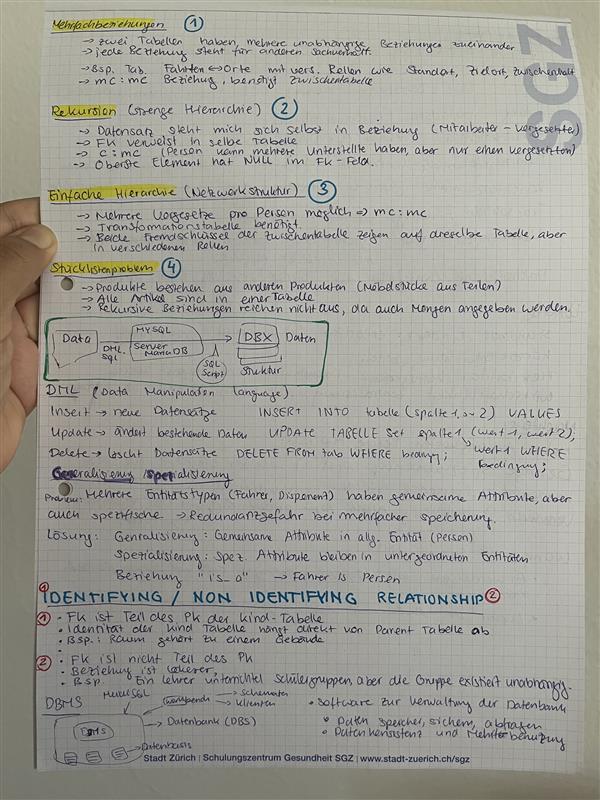 Mehrfachbeziehungen 1
→ zwei Tabellen haben, mehrere unabhängige Beziehungen zueinander
→ jede Beziehung steht für anderen Sachverhalt.
→ Bsp. Tab. Fahrten ↔ Orte mit vers. Rollen wie Standort, Zielort, Zwischenhalt
→ mc:mc Beziehung, benötigt Zwischentabelle
Rekursion (strenge Hierarchie) 2
→ Datensatz steht mich sich selbst in Beziehung (Mitarbeiter - Vorgesetzte)
→ FK verweist in selbe Tabelle
→ c:mc (Person kann mehrere Unterstellte haben, aber nur einen Vorgesetzten)
→ Oberste Element hat NULL im FK-Feld.
Einfache Hierarchie (Netzwerkstruktur) 3
→ Mehrere Vorgesetze pro Person möglich ⇒ mc:mc
→ Transformationstabelle benötigt.
→ Beide Fremdschlüssel der Zwischentabelle zeigen auf dieselbe Tabelle, aber
in verschiedenen Rollen
Stücklistenproblem 4
→ Produkte bestehen aus anderen Produkten (Möbelstücke aus Teilen)
→ Alle Artikel sind in einer Tabelle
→ Rekursive Beziehungen reichen nicht aus, da auch Mengen angegeben werden.
Data
DML
SQL
MYSQL
Server
MariaDB
SQL
Script
DBX
Daten
Struktur
DML (Data Manipulation Language)
Insert → neue Datensätze INSERT INTO tabelle (spalte 1, 2) VALUES
(wert 1, wert 2);
Update → ändert bestehende Daten UPDATE TABELLE Set spalte1
wert 1 WHERE
bedingung;
Delete → löscht Datensätze DELETE FROM tab WHERE
Generalisierung / Spezialisierung
Problem: Mehrere Entitätstypen (Fahrer, Disponent) haben gemeinsame Attribute, aber
auch spezifische → Redundanzgefahr bei mehrfacher speicherung.
Lösung: Generalisierung: Gemeinsame Attribute in allg. Entität (Person)
Spezialisierung: Spez. Attribute bleiben in untergeordneten Entitäten
Beziehung "is_a" → Fahrer is Person
1 IDENTIFYING / NON IDENTIFYING RELATIONSHIP 2
1 • FK ist Teil des PK der Kind-Tabelle
• Identität der Kind Tabelle hängt direkt von Parent Tabelle ab
• Bsp.: Raum gehört zu einem Gebäude
2 • FK ist nicht Teil des PK
• Beziehung ist lockerer
• Bsp. Ein Lehrer unterrichtet Schülergruppen, aber die Gruppe existiert unabhängig.
DBMS
Workbench
→ Schematen
→ Klienten
→ Datenbank (DBS)
Datenbasis
• Software zur Verwaltung der Datenbank
• Daten speicher, sichern, abfragen
• Datenkonsistenz und Mehrbenutzung
Stadt Zürich | Schulungszentrum Gesundheit SGZ | www.stadt-zuerich.ch/sgz
SGZ